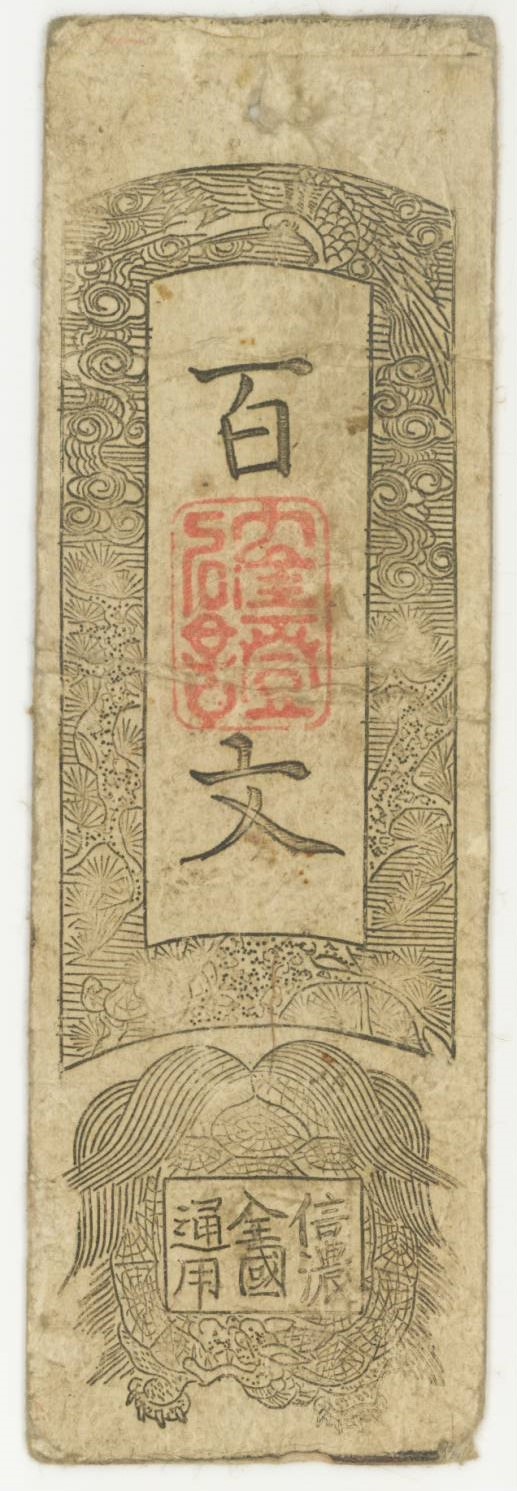 百
文
信濃
全國
通用